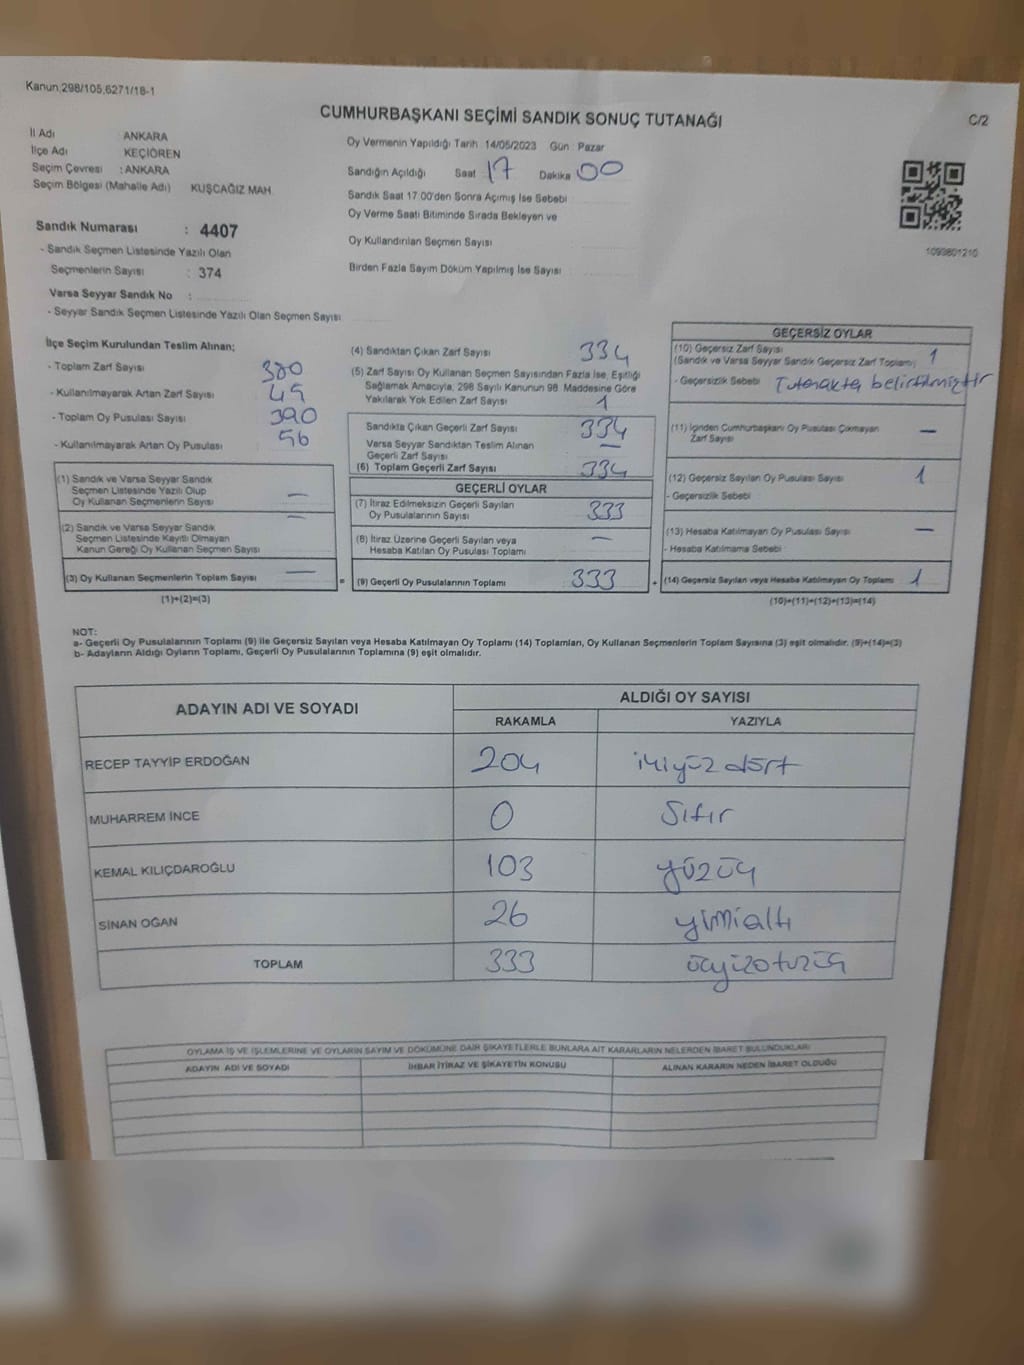 Kanun,298/105,6271/18-1
CUMHURBAŞKANI SEÇİMİ SANDIK SONUÇ TUTANAĞI
C/2
İl Adı ANKARA
İlçe Adı KEÇİÖREN
Seçim Çevresi : ANKARA
Seçim Bölgesi (Mahalle Adı) KUŞCAĞIZ MAH.
Oy Vermenin Yapıldığı Tarih 14/05/2023 Gün Pazar
Sandığın Açıldığı Saat 17 Dakika 00
Sandık Saat 17.00'den Sonra Açılmış İse Sebebi
Oy Verme Saati Bitiminde Sırada Bekleyen ve
Oy Kullandırılan Seçmen Sayısı
Birden Fazla Sayım Döküm Yapılmış İse Sayısı
1099801210
Sandık Numarası : 4407
- Sandık Seçmen Listesinde Yazılı Olan
Seçmenlerin Sayısı : 374
Varsa Seyyar Sandık No :
- Seyyar Sandık Seçmen Listesinde Yazılı Olan Seçmen Sayısı
İlçe Seçim Kurulundan Teslim Alınan;
- Toplam Zarf Sayısı 380
- Kullanılmayarak Artan Zarf Sayısı 45
- Toplam Oy Pusulası Sayısı 390
- Kullanılmayarak Artan Oy Pusulası 56
(1) Sandık ve Varsa Seyyar Sandık
Seçmen Listesinde Yazılı Olup
Oy Kullanan Seçmenlerin Sayısı —
(2) Sandık ve Varsa Seyyar Sandık —
Seçmen Listesinde Kayıtlı Olmayan
Kanun Gereği Oy Kullanan Seçmen Sayısı
(3) Oy Kullanan Seçmenlerin Toplam Sayısı — =
(1)+(2)=(3)
(4) Sandıktan Çıkan Zarf Sayısı 334
(5) Zarf Sayısı Oy Kullanan Seçmen Sayısından Fazla İse, Eşitliği
Sağlamak Amacıyla, 298 Sayılı Kanunun 98. Maddesine Göre
Yakılarak Yok Edilen Zarf Sayısı 1
Sandıkta Çıkan Geçerli Zarf Sayısı 334
Varsa Seyyar Sandıktan Teslim Alınan
Geçerli Zarf Sayısı —
(6) Toplam Geçerli Zarf Sayısı 334
GEÇERLİ OYLAR
(7) İtiraz Edilmeksizin Geçerli Sayılan
Oy Pusulalarının Sayısı 333
(8) İtiraz Üzerine Geçerli Sayılan veya
Hesaba Katılan Oy Pusulası Toplamı —
(9) Geçerli Oy Pusulalarının Toplamı 333 +
GEÇERSİZ OYLAR
(10) Geçersiz Zarf Sayısı
(Sandık ve Varsa Seyyar Sandık Geçersiz Zarf Toplamı) 1
- Geçersizlik Sebebi Tutanakta belirtilmiştir
(11) İçinden Cumhurbaşkanı Oy Pusulası Çıkmayan
Zarf Sayısı —
(12) Geçersiz Sayılan Oy Pusulası Sayısı 1
- Geçersizlik Sebebi
(13) Hesaba Katılmayan Oy Pusulası Sayısı —
- Hesaba Katılmama Sebebi
(14) Geçersiz Sayılan veya Hesaba Katılmayan Oy Toplamı 1
(10)+(11)+(12)+(13)=(14)
NOT:
a- Geçerli Oy Pusulalarının Toplamı (9) ile Geçersiz Sayılan veya Hesaba Katılmayan Oy Toplamı (14) Toplamları, Oy Kullanan Seçmenlerin Toplam Sayısına (3) eşit olmalıdır. (9)+(14)=(3)
b- Adayların Aldığı Oyların Toplamı, Geçerli Oy Pusulalarının Toplamına (9) eşit olmalıdır.
ADAYIN ADI VE SOYADI ALDIĞI OY SAYISI
RAKAMLA YAZIYLA
RECEP TAYYİP ERDOĞAN 204 ikiyüz dört
MUHARREM İNCE 0 Sıfır
KEMAL KILIÇDAROĞLU 103 yüzüç
SİNAN OĞAN 26 yimialtı
TOPLAM 333 üçyüzotuzüç
OYLAMA İŞ VE İŞLEMLERİNE VE OYLARIN SAYIM VE DÖKÜMÜNE DAİR ŞİKAYETLERLE BUNLARA AİT KARARLARIN NELERDEN İBARET BULUNDUKLARI
ADAYIN ADI VE SOYADI İHBAR İTİRAZ VE ŞİKAYETİN KONUSU ALINAN KARARIN NEDEN İBARET OLDUĞU